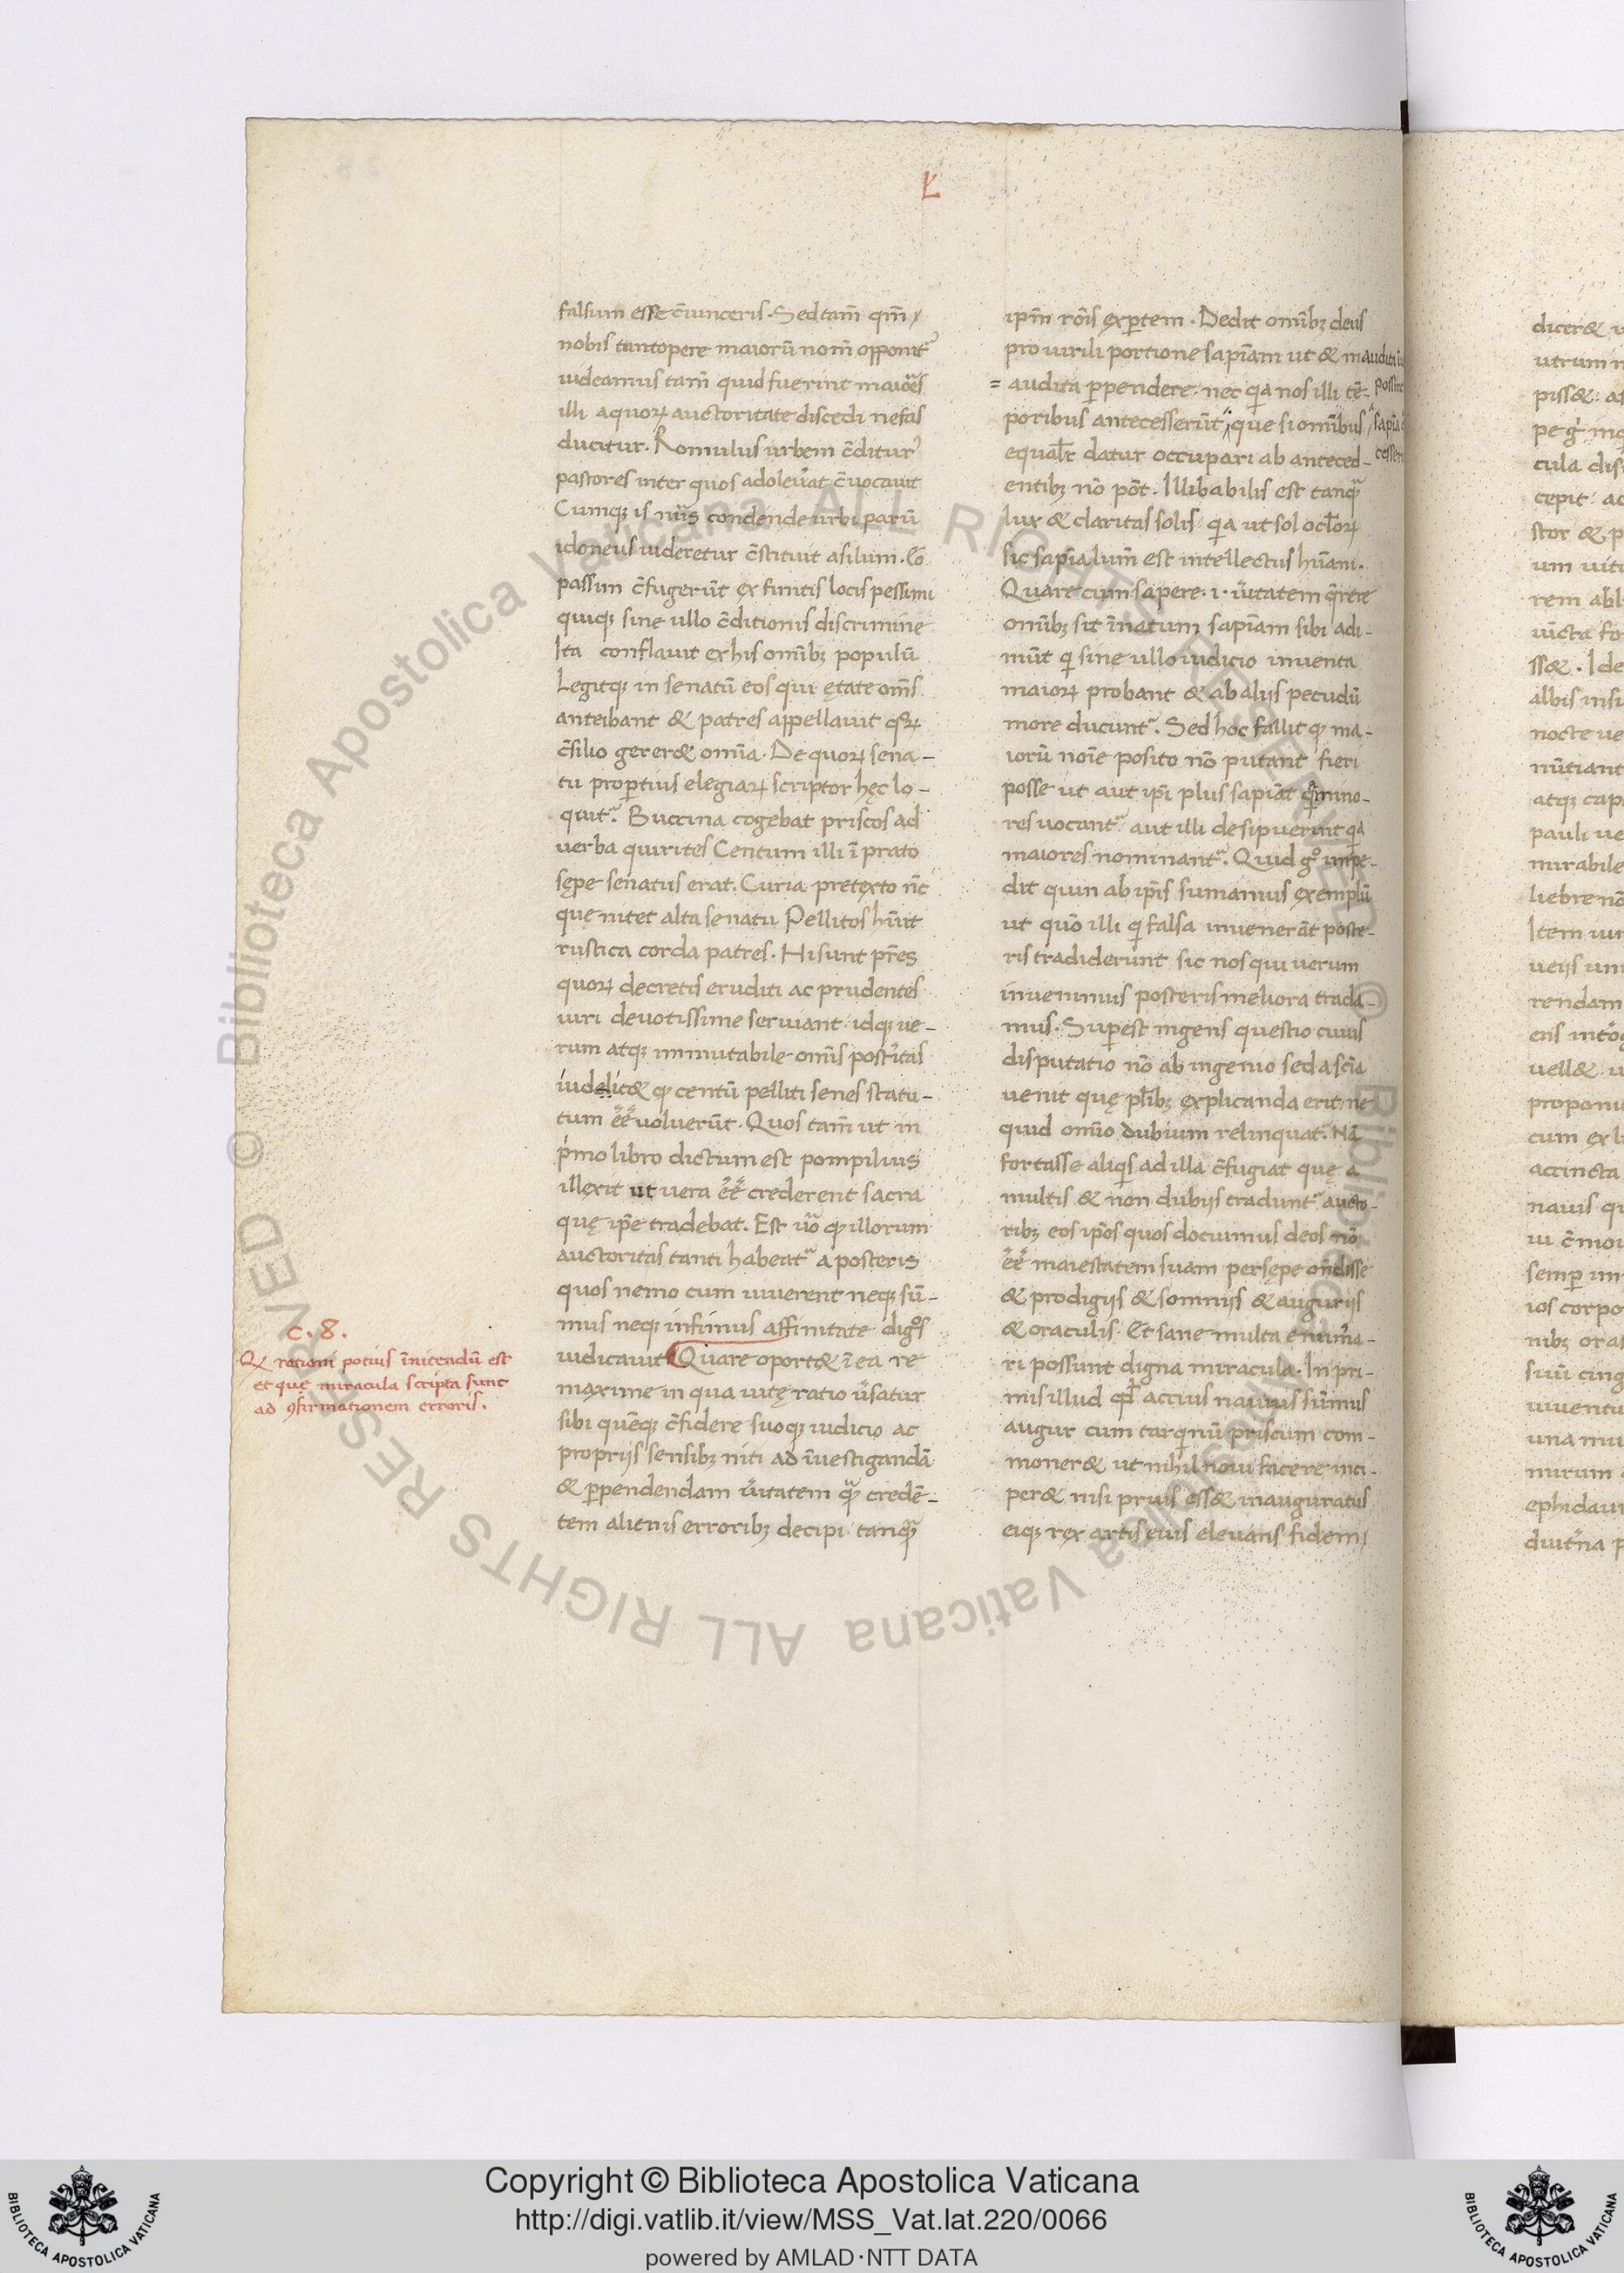 Ł
falsum esse c̄iunceris. Sed tam̄ qm̄
nobis tantopere maiorū nom̄ opponit᷒
uideamus tam̄ quid fuerint maiores
illi a quoꝝ auctoritate discedi nefas
ducitur. Romulus urbem c̄diturꝰ
pastores inter quos adoleu̓at c̄uocauit
Cumqꝫ is nu̓us condende urbi parū
idoneus uideretur c̄stituit asilum. Eo
passim c̄fugerūt ex finitis locis pessimi
quiqꝫ sine ullo c̄ditionis discrimine
Ita conflauit ex his omībꝫ populū
Legitqꝫ in senatū eos qui ętate om̄s
anteibant & patres appellauit qͦꝝ
c̄silio gerer& omīa. De quoꝝ sena-
tu prop̱tius elegiaꝝ scriptor hęc lo-
quit᷒. Buccina cogebat priscos ad
uerba quirites Centum illi ī prato
sępe senatus erat. Curia pretexto nc̄
quę nitet alta senatu Pellitos hūit
rustica corda patres. Hi sunt pr̄es
quoꝝ decretis eruditi ac prudentes
uiri deuotissime seruiant idqꝫ ue-
rum atqꝫ immutabile omīs post̓itas
iudic& ꝙ centū pelliti senes statu-
tum ēē uoluerūt. Quos tam̄ ut in
p̓mo libro dictum est pompilius
illexit ut uera ēē crederent sacra
quę ip̄e tradebat. Est uͦo ꝙ illorum
auctoritas tanti habeat᷒ a posteris
quos nemo cum uiuerent neqꝫ sū-
mus neqꝫ infimus affinitate digͦs
iudicauit Quare oport& ī ea re
maxime in qua uitę ratio u̓satur
sibi quēqꝫ c̄fidere suoqꝫ iudicio ac
proprijs sensibꝫ niti ad īuestigandā
& ꝑpendendam u̓itatem qͣꝫ credē-
tem alienis erroribꝫ decipi tanqͣꝫ
c. 8.
Qꝫ rationi potius īnitendū est
et que miracula scripta sunt
ad ꝯfirmationem erroris.
ipm̄ rōis exꝑtem. Dedit omībꝫ deus
pro uirili portione sapīam ut & inaudita
= audita ꝑpendere nec qͥa nos illi tē-
poribus antecesserūt que si omībus
equalr̄ datur occupari ab anteced-
entibꝫ nō pōt. Illibabilis est tanqͣꝫ
lux & claritas solis qͥa ut sol ocl̄oꝝ
sic sapīa lum̄ est intellectus hūani.
Quare cum sapere .i. u̓itatem qͣ̄rere
omībꝫ sit īnatum sapīam sibi adi-
mūt qͥ sine ullo iudicio inuenta
maioꝝ probant & ab alijs pecudū
more ducunt᷒. Sed hoc fallit ꝙ ma-
iorū noīe posito nō putant fieri
posse ut aut ip̄i plus sapiāt qͥ mino-
res uocant᷒ aut illi desipuerint qͥa
maiores nominant᷒. Quid gͦ impe-
dit quin ab ip̄is sumamus exemplū
ut quō illi qͥ falsa inuenerāt poste-
ris tradiderunt sic nos qui uerum
inuenimus posteris meliora trada-
mus. Suꝑest ingens questio cuius
disputatio nō ab ingenio sed a scīa
uenit quę pl̄ibꝫ explicanda erit ne
quid omīo dubium relinquat᷒. Nā
fortasse aliqͥs ad illa c̄fugiat quę a
multis & non dubijs tradunt᷒ aucto-
ribꝫ eos ip̄os quos docuimus deos nō
ēē maiestatem suam persępe on̄disse
& prodigijs & somnijs & augurijs
& oraculis. Et sane multa enum̓a-
ri possunt digna miracula. In pri-
mis illud qd̄ accius nauius sūmus
augur cum tarqͥnū priscum com-
moner& ut nihil noui facere inci-
per& nisi prius ess& inauguratus
eiqꝫ rex artis eius eleuans fidem
Copyright © Biblioteca Apostolica Vaticana
http://digi.vatlib.it/view/MSS_Vat.lat.220/0066
powered by AMLAD·NTT DATA